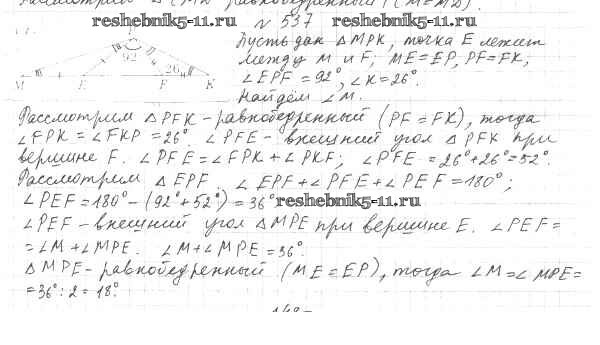 Рассмотрим Δ
равнобедренный
reshebnik5-11.ru № 537 reshebnik5-11.ru
Пусть дан Δ MPK, точка E лежит
между M и F; ME=EP, PF=FK,
∠EPF = 92°, ∠K=26°.
Найдём ∠M.
92 26
M E F K
Рассмотрим Δ PFK - равнобедренный (PF=FK), тогда
∠FPK = ∠FKP = 26°. ∠PFE - внешний угол Δ PFK при
вершине F. ∠PFE = ∠FPK + ∠PKF; ∠PFE = 26°+26°=52°.
Рассмотрим Δ EPF. ∠EPF + ∠PFE + ∠PEF = 180°;
∠PEF = 180° - (92°+52°) = 36° reshebnik5-11.ru
∠PEF - внешний угол Δ MPE при вершине E. ∠PEF =
= ∠M + ∠MPE. ∠M + ∠MPE = 36°.
Δ MPE - равнобедренный (ME = EP), тогда ∠M = ∠MPE =
= 36° : 2 = 18°.